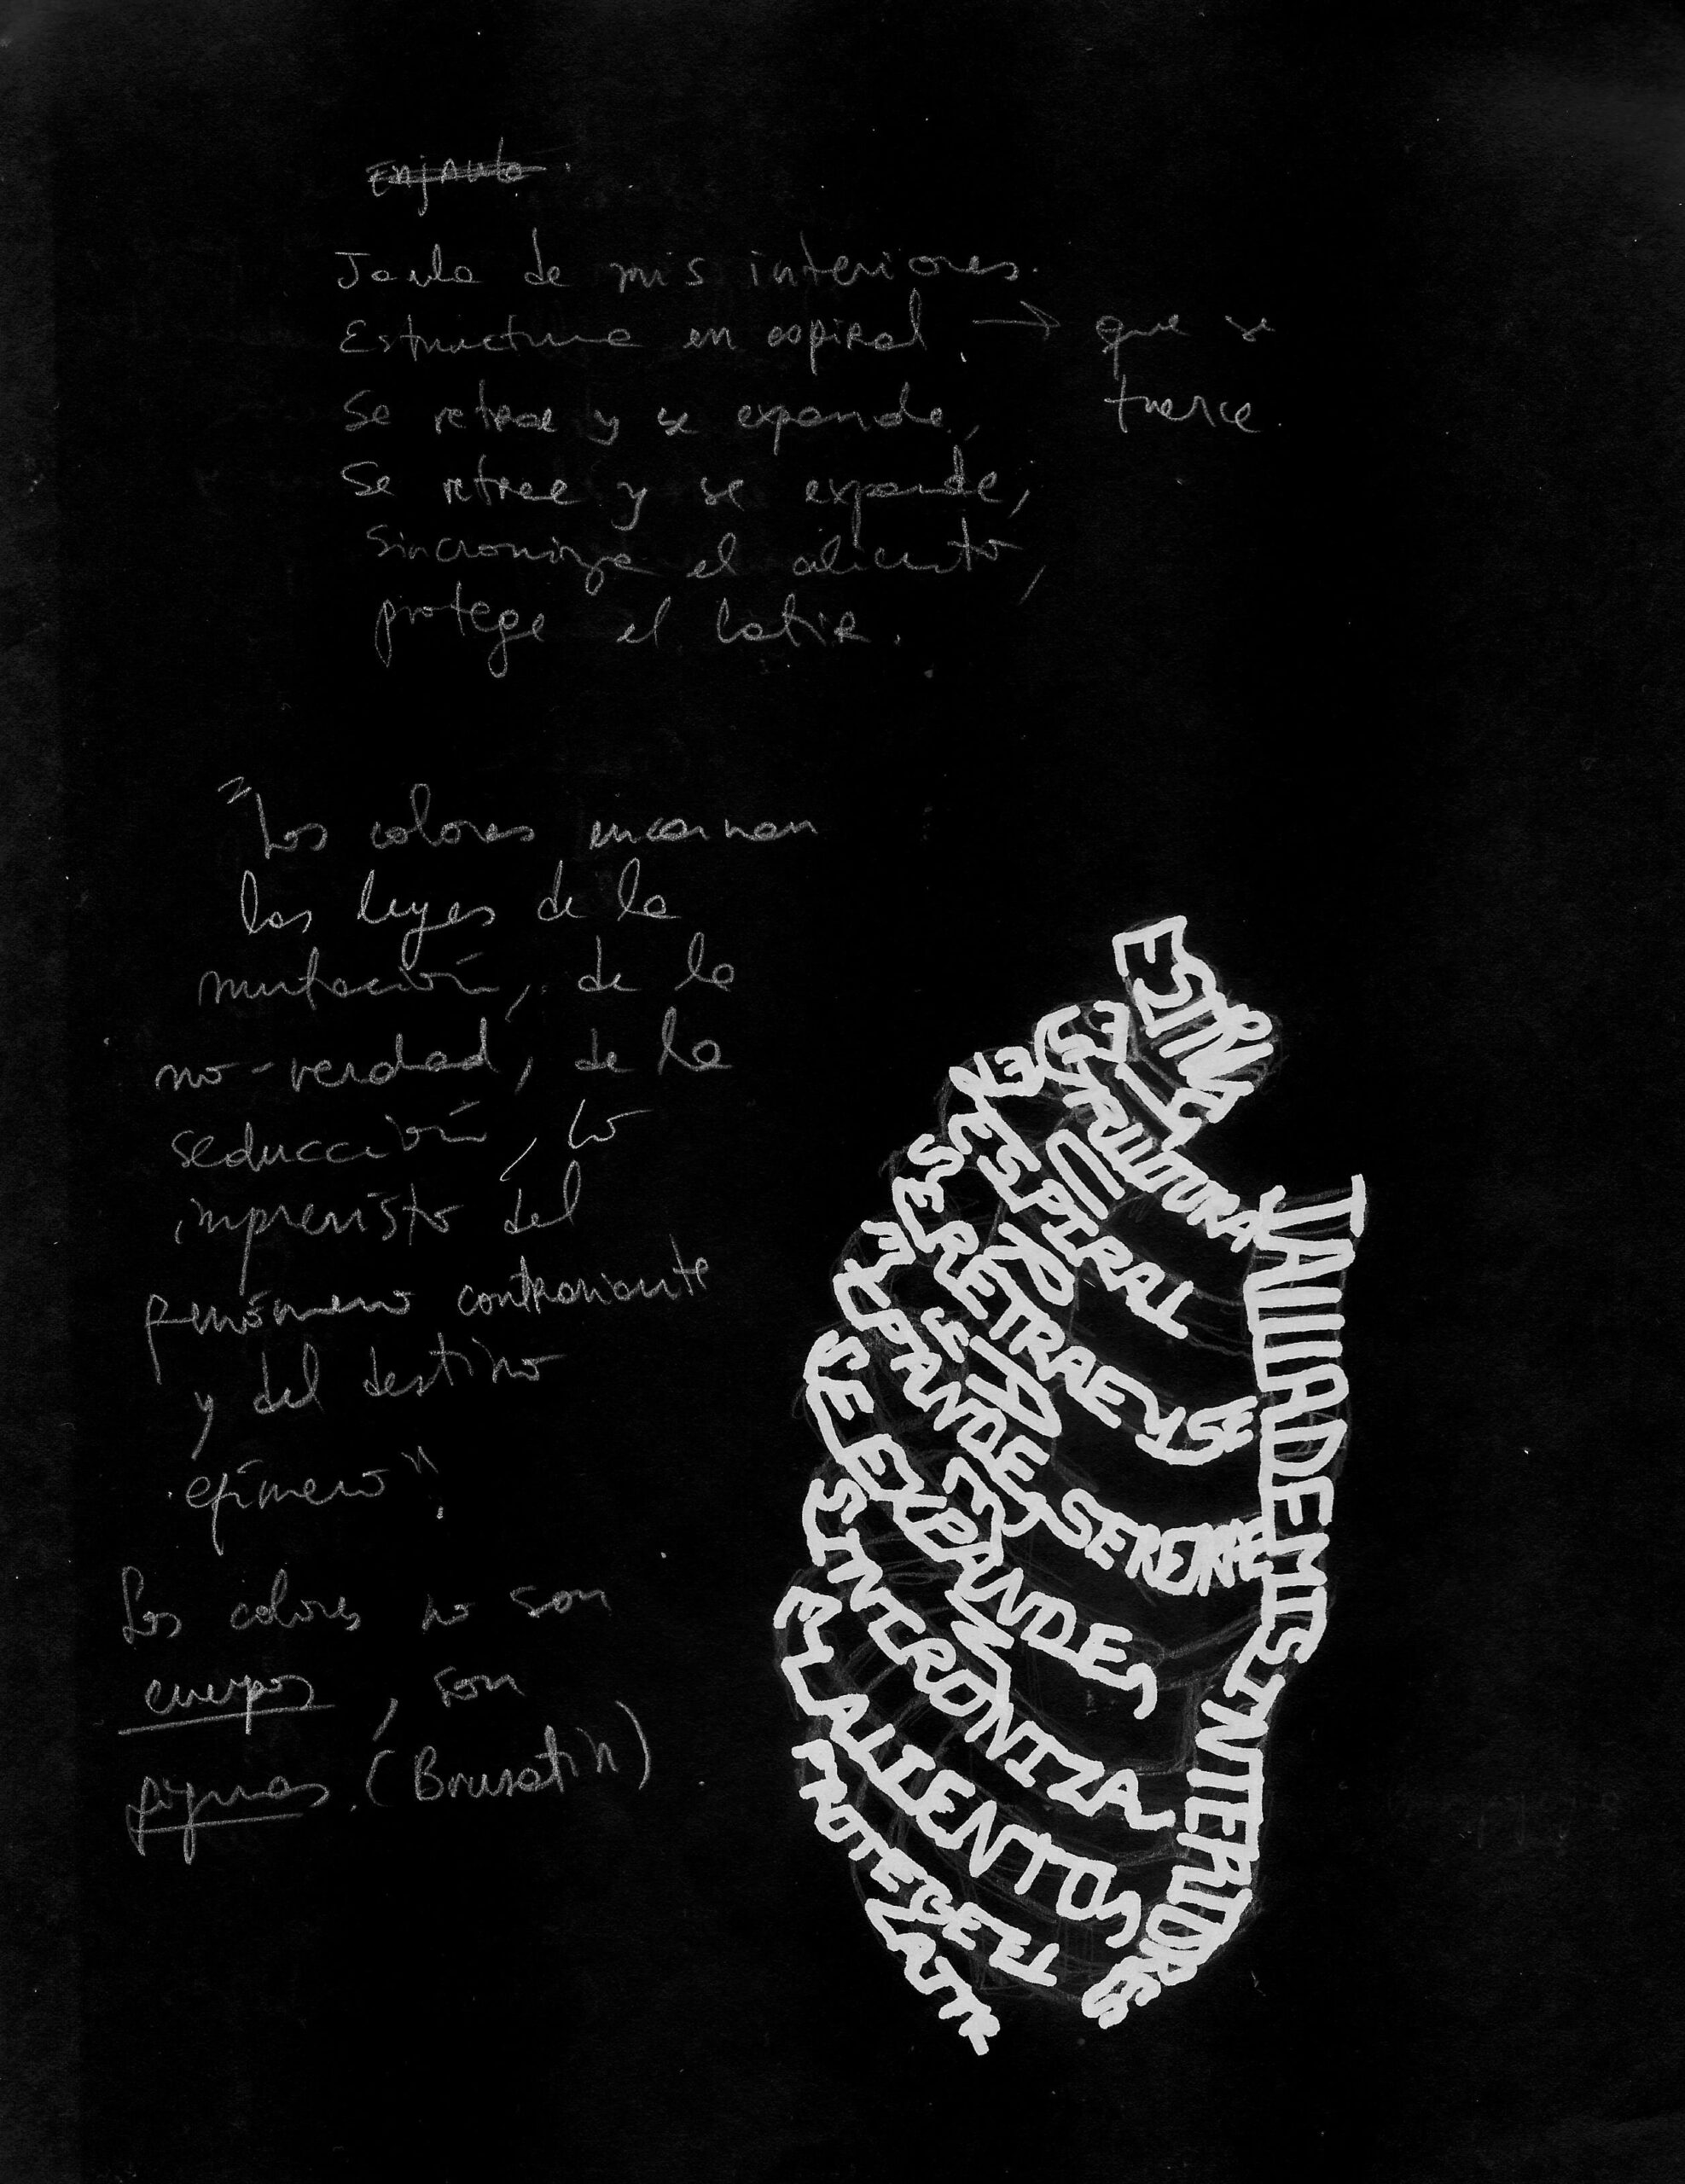 Enjaula.
Jaula de mis interiores.
Estructura en espiral. → que se
tuerce.
Se retrae y se expande,
Se retrae y se expande,
sincroniza el aliento,
protege el latir.
"Los colores encarnan
las leyes de la
mutación, de la
no-verdad, de la
seducción, lo
imprevisto del
fenómeno contrariante
y del destino
efímero".
Los colores no son
cuerpos, son
figuras. (Brusatin)
JAULA DE MIS INTERIORES
ESTRUCTURA
ESPIRAL
SE RETRAE Y SE
EXPANDE, SE RETRAE
SE EXPANDE,
SINCRONIZA
EL ALIENTO,
PROTEGE EL
LATIR